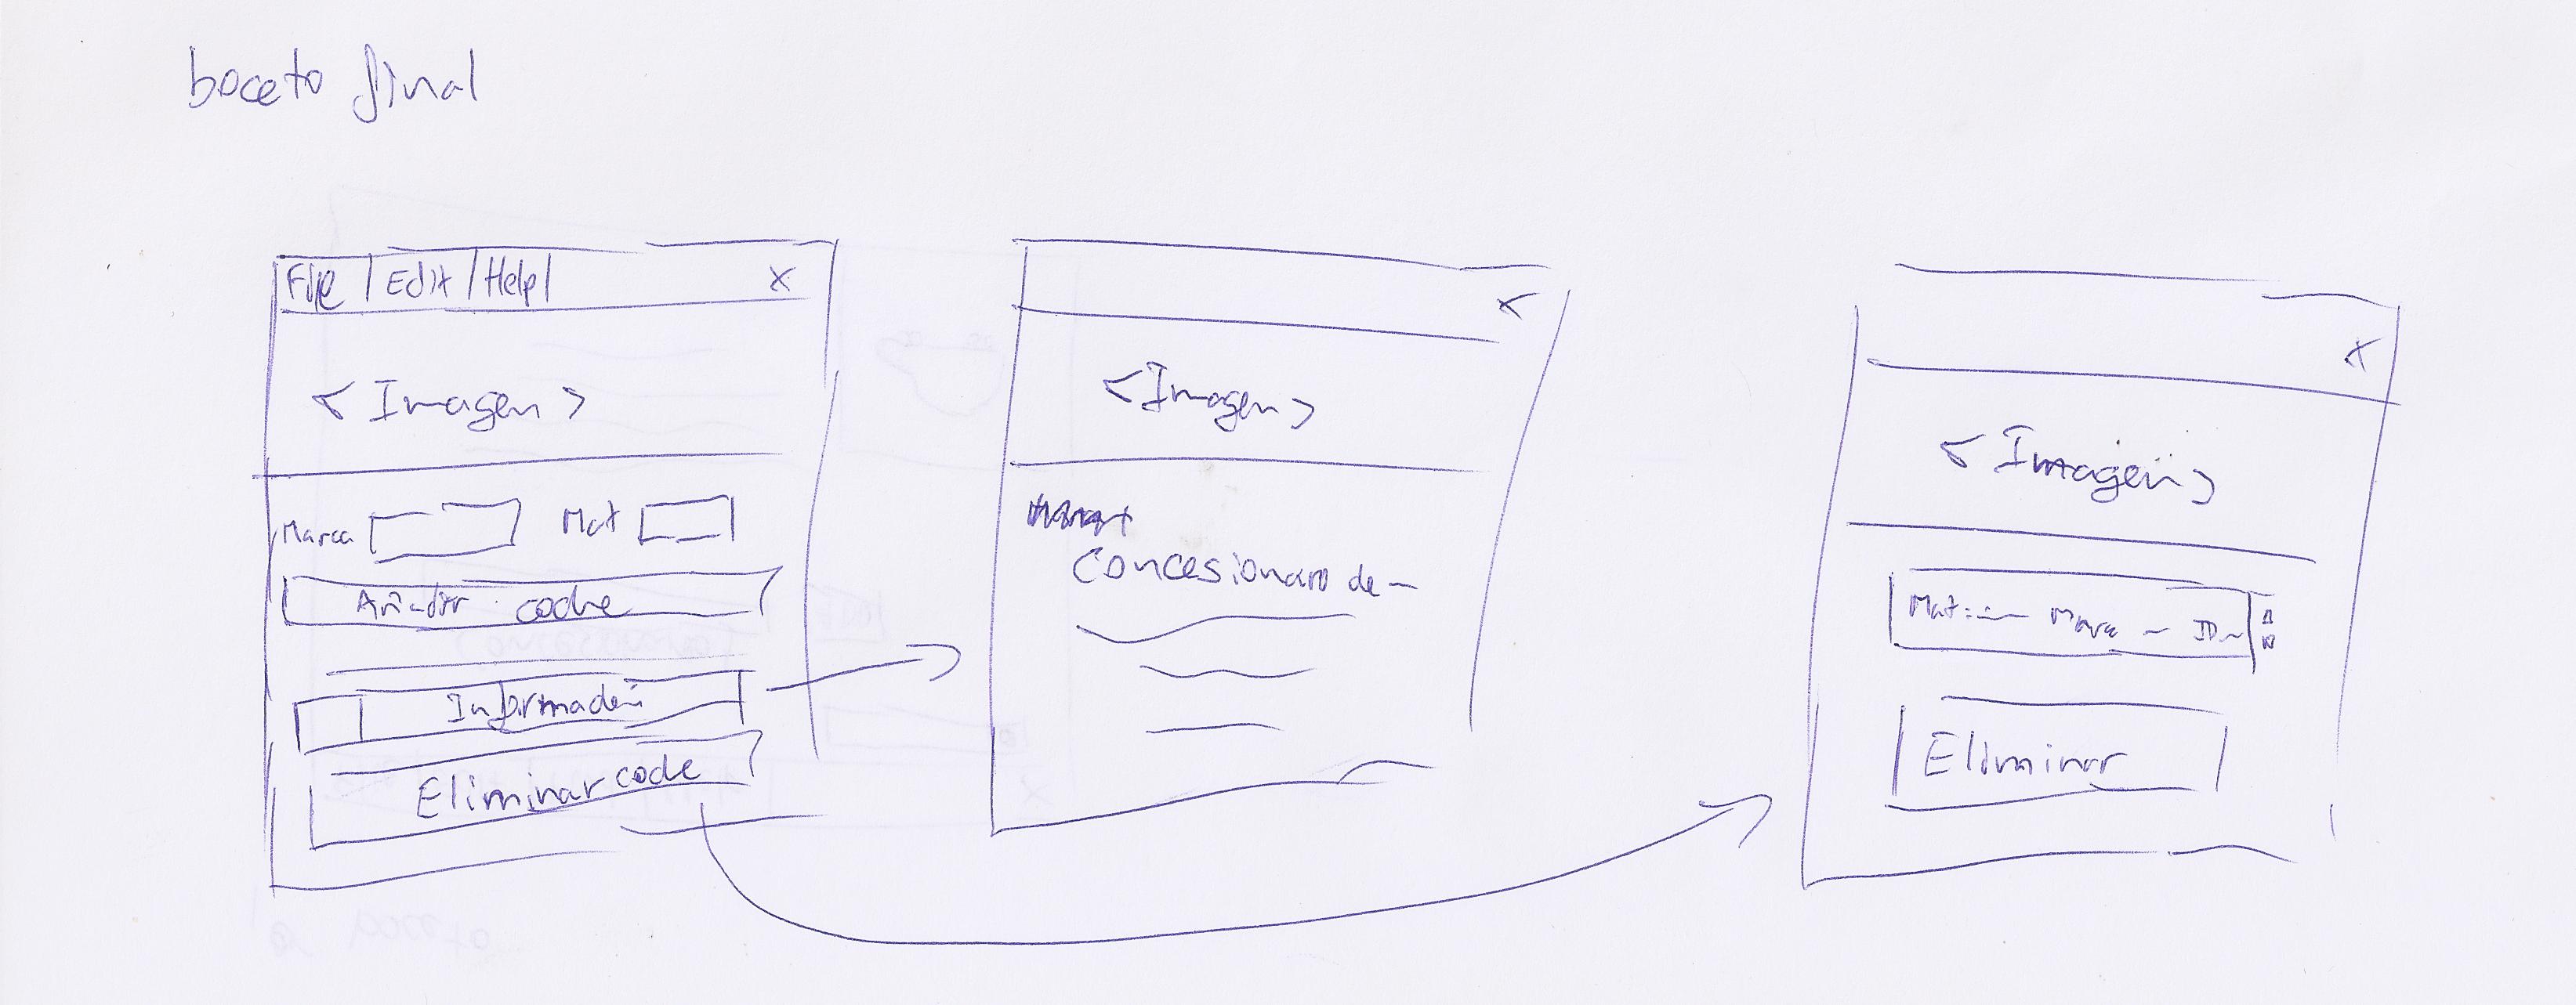 boceto final
File | Edit | Help | X
<Imagen>
Marca Mat
Añadir coche
Información
Eliminar coche
X
<Imagen>
Concesionaro de
X
<Imagen>
Mat: Marca ID
Eliminar